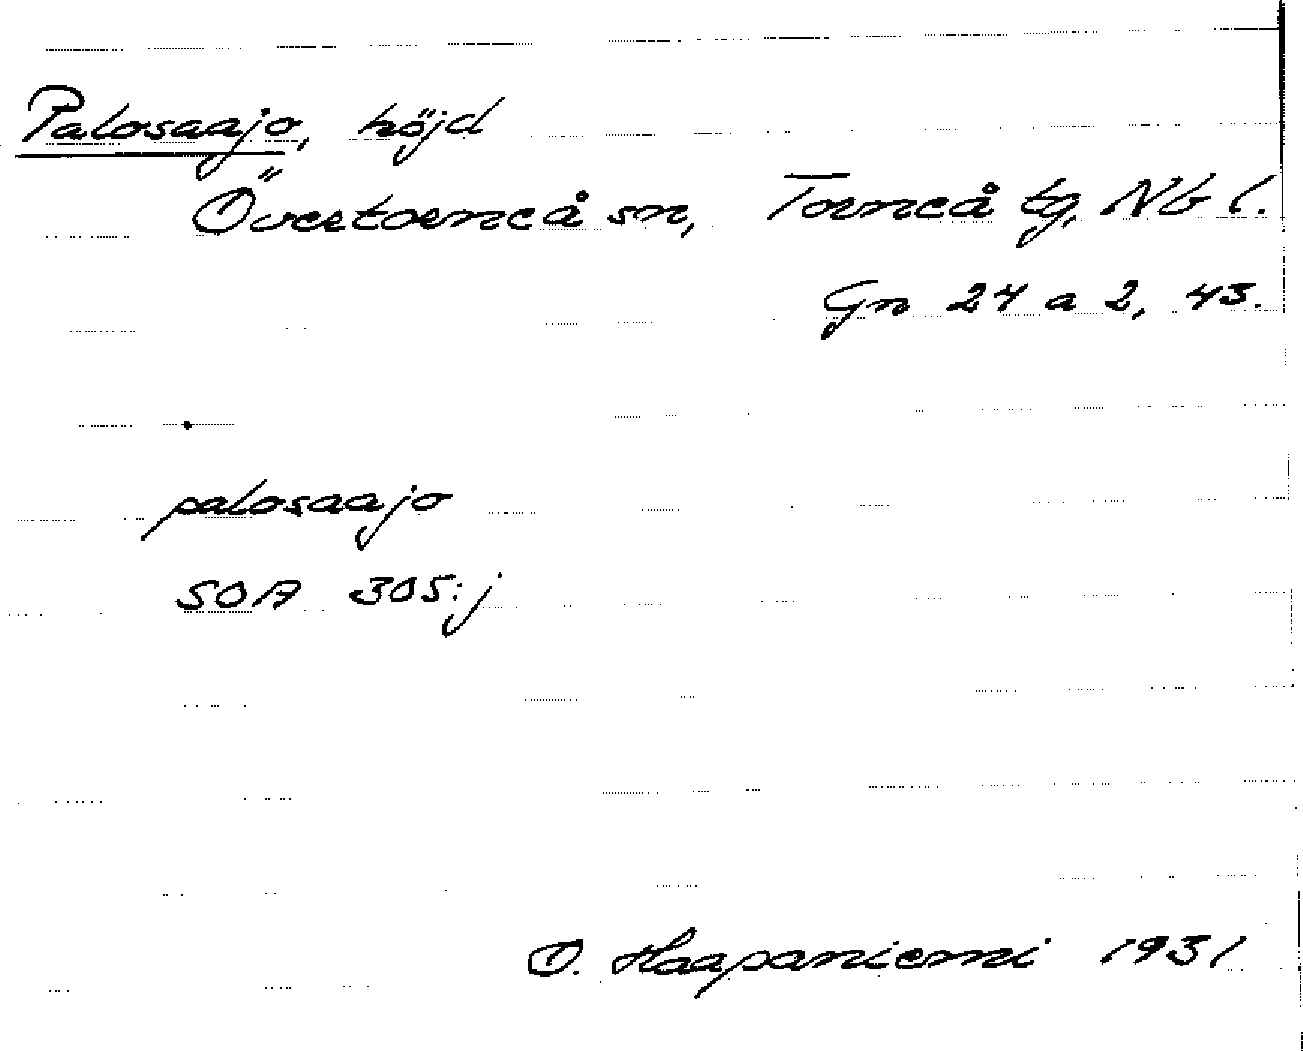 Palosaajo, höjd
Övertorneå sn, Torneå tg, Nb l.
Gn 24 a 2, 43.
palosaajo
SOA 305:j
O. Haapaniemi 1931